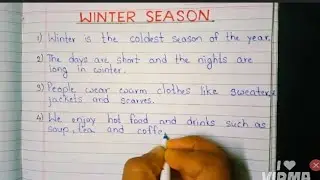 WINTER SEASON
1) Winter is the coldest season of the year.
2) The days are short and the nights are
long in winter.
3) People wear warm clothes like sweater
jackets and scarves.
4) We enjoy hot food and drinks such as
soup, tea and coffe
I
VIRMA